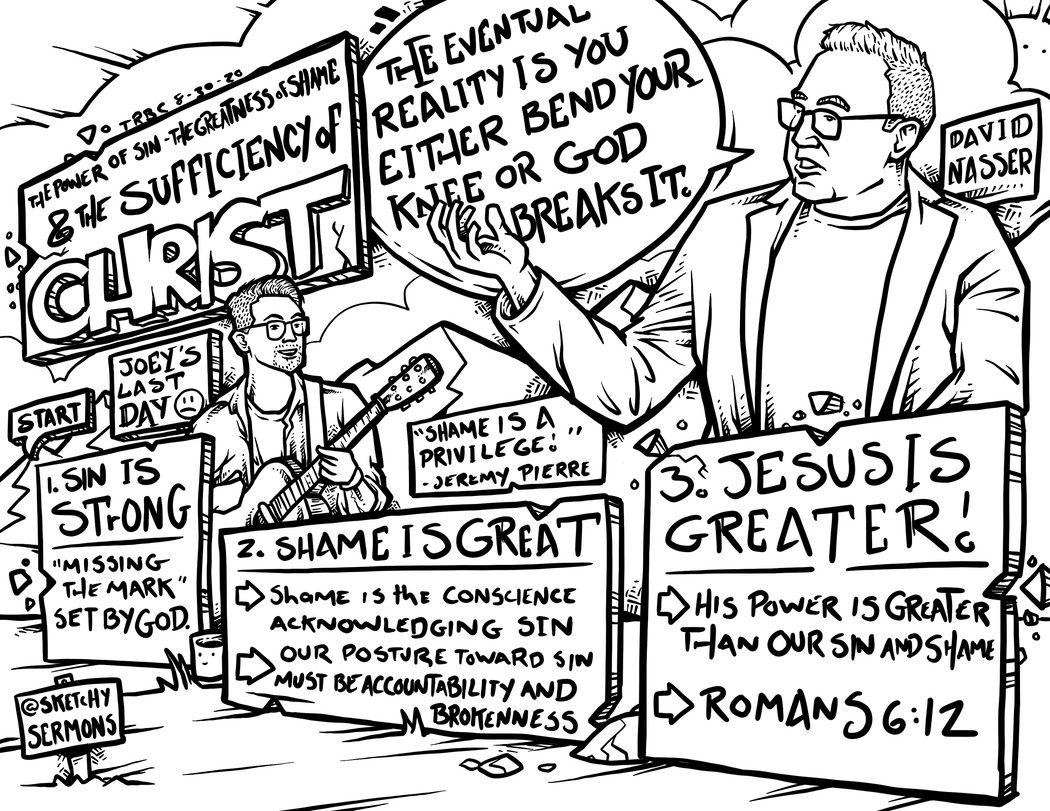 TRBC 8-30-20
THE POWER OF SIN - THE GREATNESS of SHAME
& THE SUFFICIENCY of
CHRIST
THE EVENTUAL
REALITY IS YOU
EITHER BEND YOUR
KNEE OR GOD
BREAKS IT.
DAVID
NASSER
JOEY'S
LAST
DAY
START
1. SIN IS
STrONG
"MISSING
THE MARK"
SET BY GOD.
"SHAME IS A
PRIVILEGE!"
- JEREMY PIERRE
2. SHAME IS GREAT
SHAME IS the CONSCIENCE
ACKNOWLEDGING SIN
OUR POSTURE TOWARD SIN
MUST BE ACCOUNTABILITY AND
BROKENNESS
3. JESUS IS
GREATER!
HIS POWER IS GREATER
THAN OUR SIN AND SHAME
ROMANS 6:12
@SKETCHY
SERMONS